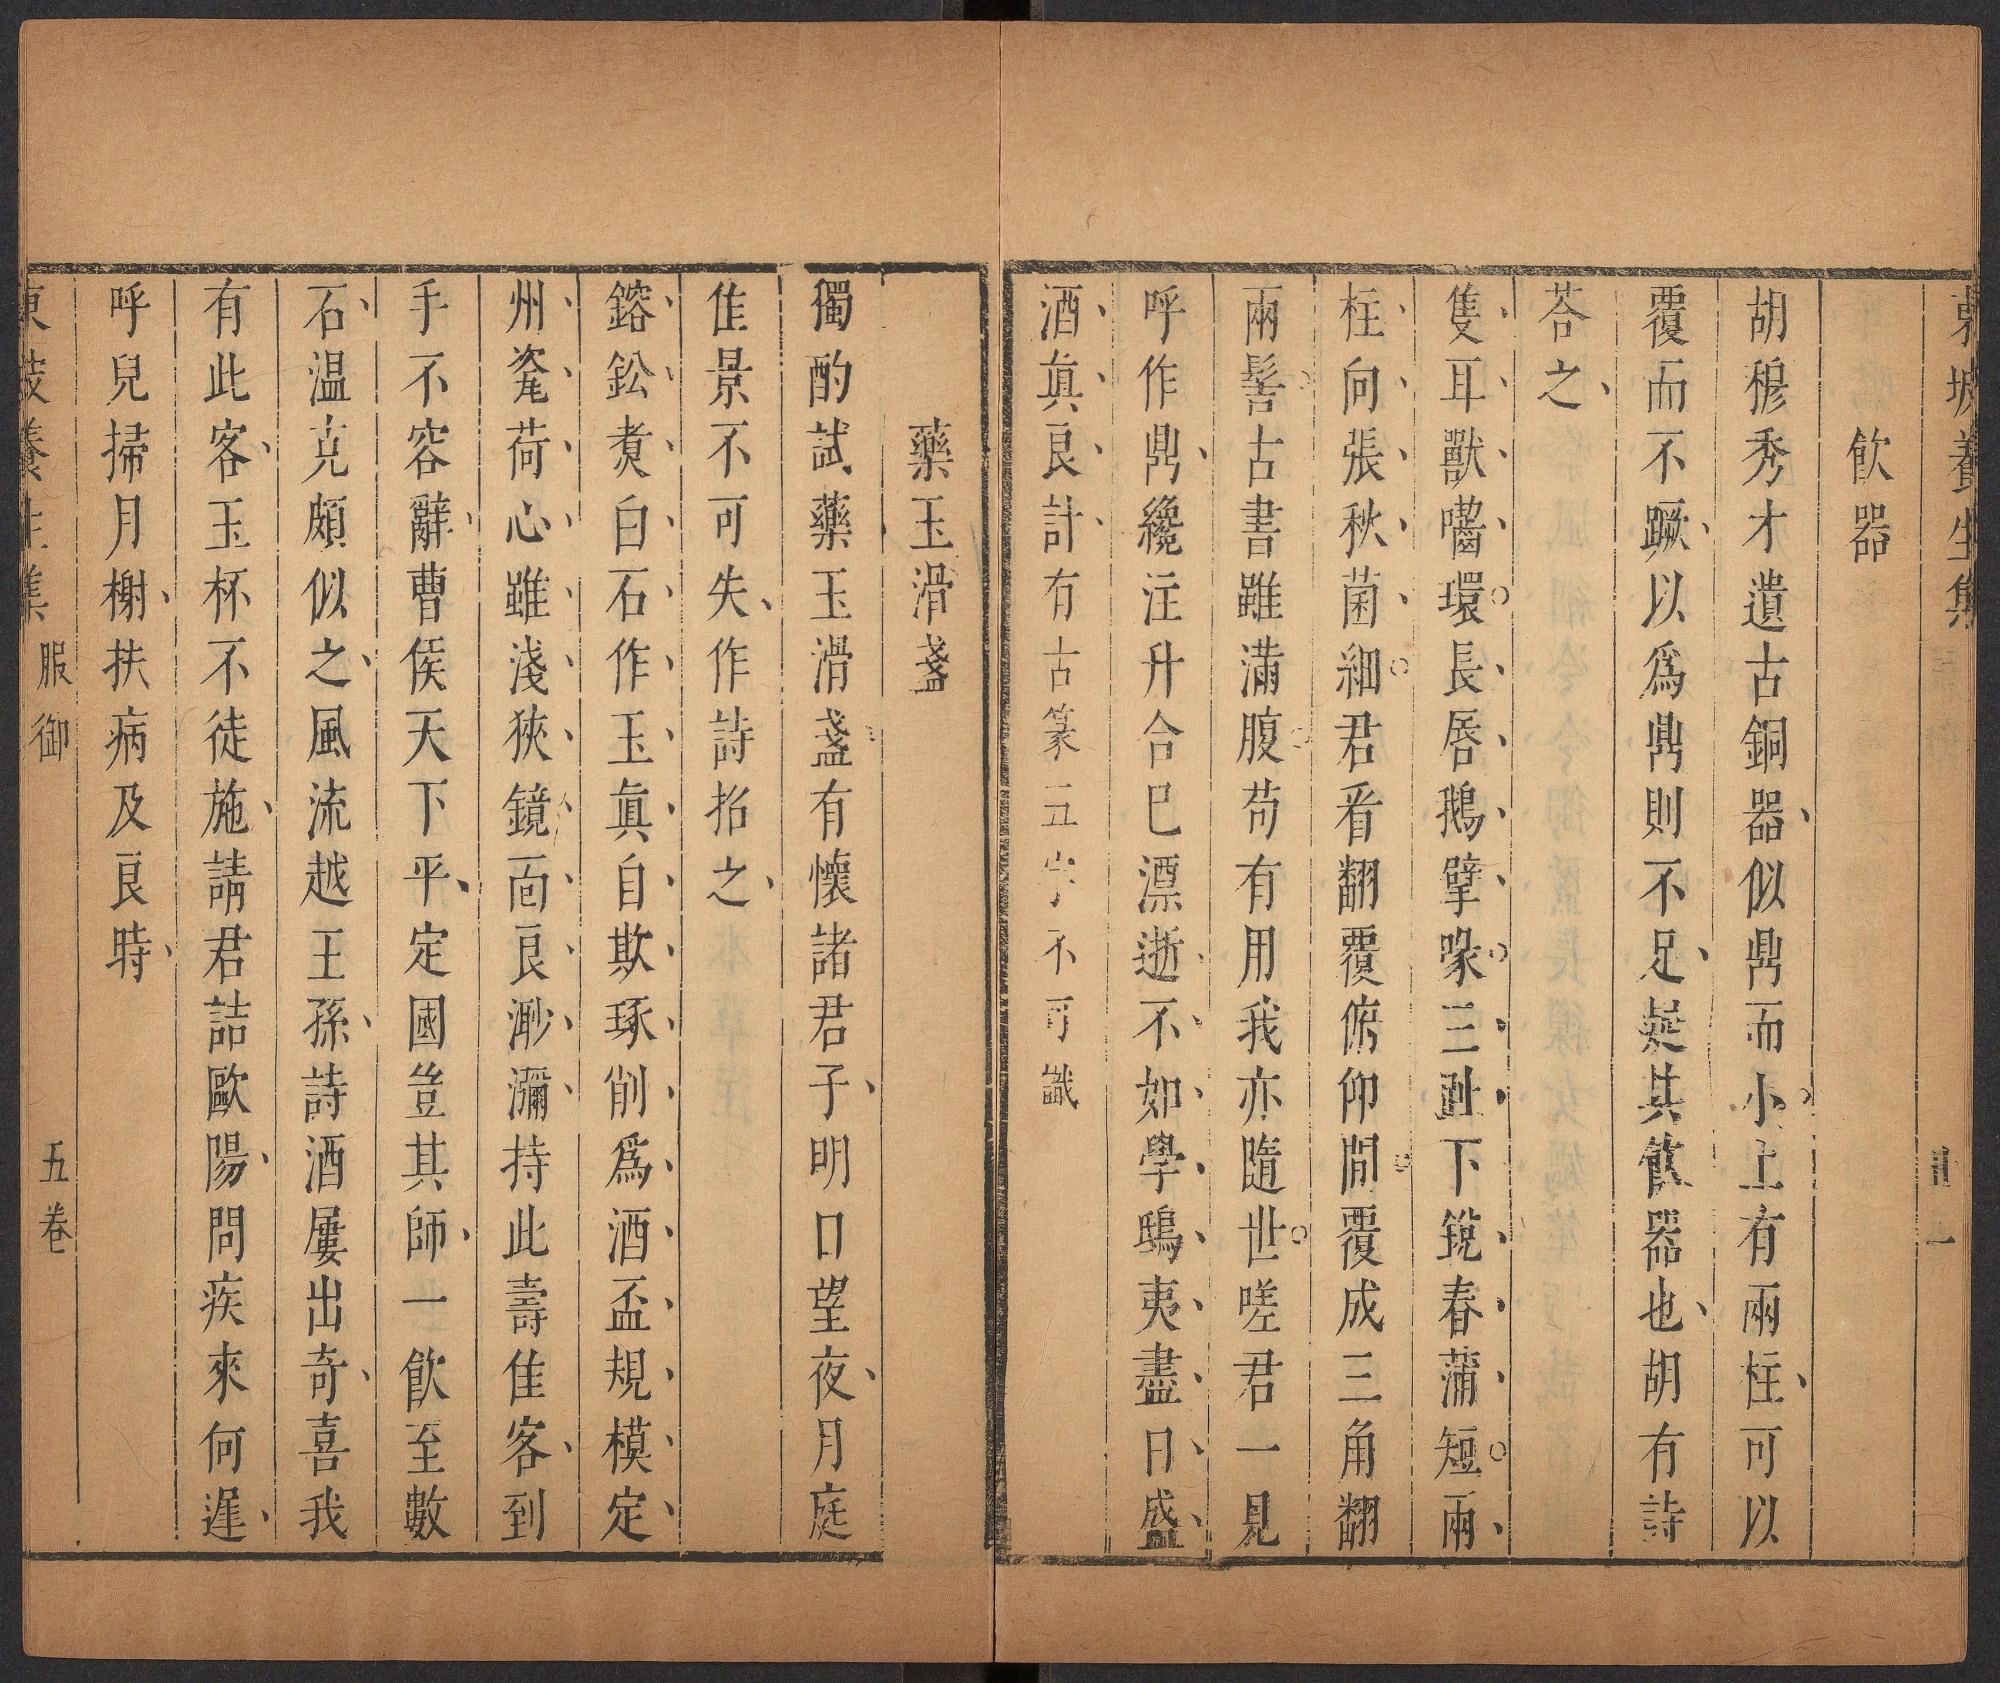 東坡養生集
飲器
胡穆秀才遺古銅器似鼎而小上有兩柱可以
覆而不蹶以爲鼎則不足疑其飲器也胡有詩
荅之
隻耳獸嚙環長唇鵝擘喙三趾下銳春蒲短兩
柱向張秋菌細君看翻覆俯仰間覆成三角翻
兩髻古書雖滿腹苟有用我亦隨世嗟君一見
呼作鼎纔注升合已漂逝不如學鴟夷盡日盛
酒真良計有古篆五字不可識
藥玉滑盞
獨酌試藥玉滑盞有懷諸君子明日望夜月庭
佳景不可失作詩招之
鎔鈆煑白石作玉真自欺琢削爲酒盃規模定
州瓷荷心雖淺狹鏡面良渺瀰持此壽佳客到
手不容辭曹侯天下平定國豈其師一飲至數
石温克頗似之風流越王孫詩酒屢出奇喜我
有此客玉杯不徒施請君詰歐陽問疾來何遲
呼兒掃月榭扶病及良時
東坡養生集 服御 五卷